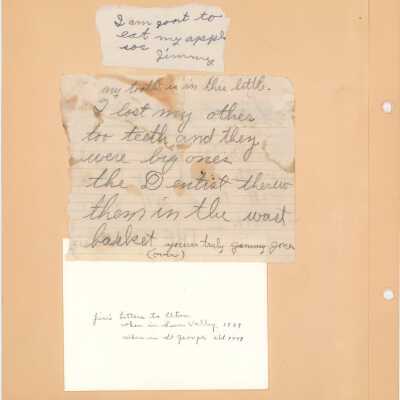 I am goot to
eat my appl
soc
Jimmy
my tooth is in this little.
I lost my other
too teeth and they
were big ones
the Dentist therw
them in the wast
basket yours truly Jimmy Jones
(over)
Jim's letters to
when in Sun Valley, 19
when in St George